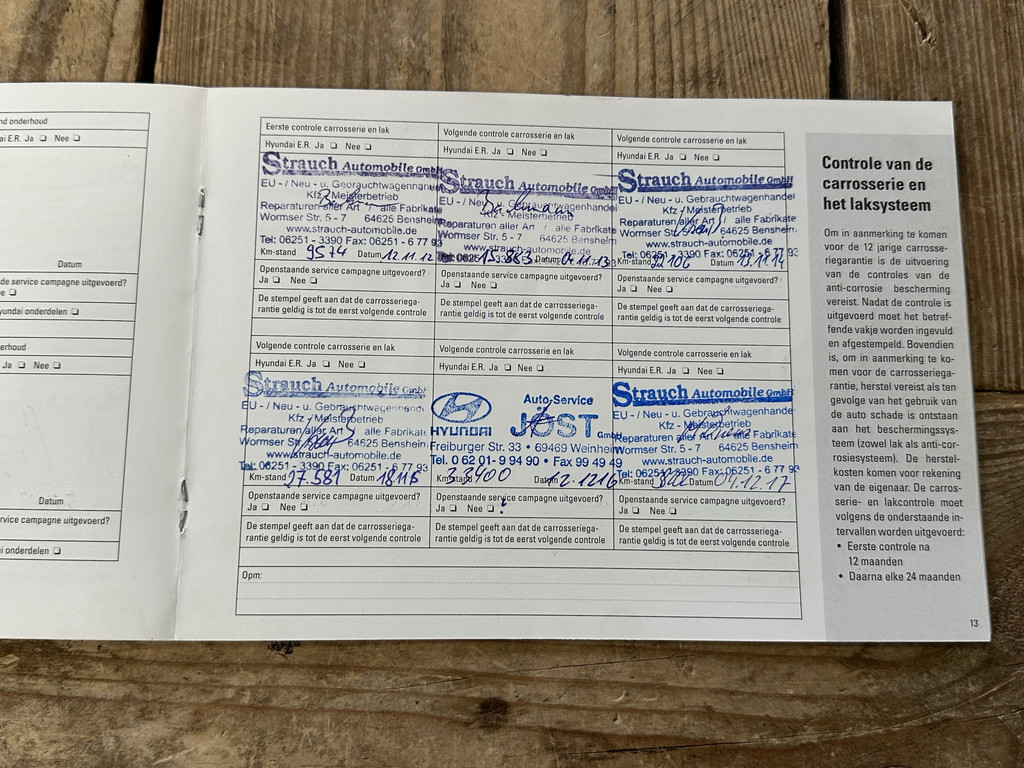 nd onderhoud
ai E.R. Ja ❏ Nee ❏
Datum
de service campagne uitgevoerd?
e ❏
yundai onderdelen ❏
erhoud
Ja ❏ Nee ❏
Datum
rvice campagne uitgevoerd?
ai onderdelen ❏
Eerste controle carrosserie en lak
Hyundai E.R. Ja ❏ Nee ❏
Strauch Automobile GmbH
EU - / Neu - u. Gebrauchtwagenhandel
Kfz - Meisterbetrieb
Reparaturen aller Art / alle Fabrikate
Wormser Str. 5 - 7 64625 Bensheim
www.strauch-automobile.de
Tel: 06251 - 3390 Fax: 06251 - 6 77 93
Km-stand 9574 Datum 12.11.12
Openstaande service campagne uitgevoerd?
Ja ❏ Nee ❏
De stempel geeft aan dat de carrosseriega-
rantie geldig is tot de eerst volgende controle
Volgende controle carrosserie en lak
Hyundai E.R. Ja ❏ Nee ❏
Strauch Automobile GmbH
EU - / Neu - u. Gebrauchtwagenhandel
Kfz - Meisterbetrieb
Reparaturen aller Art / alle Fabrikate
Wormser Str. 5 - 7 64625 Bensheim
www.strauch-automobile.de
Datum 04.11.13
Openstaande service campagne uitgevoerd?
Ja ❏ Nee ❏
De stempel geeft aan dat de carrosseriega-
rantie geldig is tot de eerst volgende controle
Volgende controle carrosserie en lak
Hyundai E.R. Ja ❏ Nee ❏
Strauch Automobile GmbH
EU - / Neu - u. Gebrauchtwagenhandel
Kfz - Meisterbetrieb
Reparaturen aller Art / alle Fabrikate
Wormser Str. 5 - 7 64625 Bensheim
www.strauch-automobile.de
Tel: 06251 - 3390 Fax: 06251 - 6 77 93
Km-stand 22106 Datum 13.11.14
Openstaande service campagne uitgevoerd?
Ja ❏ Nee ❏
De stempel geeft aan dat de carrosseriega-
rantie geldig is tot de eerst volgende controle
Volgende controle carrosserie en lak
Hyundai E.R. Ja ❏ Nee ❏
Strauch Automobile GmbH
EU - / Neu - u. Gebrauchtwagenhandel
Kfz - Meisterbetrieb
Reparaturen aller Art / alle Fabrikate
Wormser Str. 5 - 7 64625 Bensheim
www.strauch-automobile.de
Tel: 06251 - 3390 Fax: 06251 - 6 77 93
Km-stand 27.581 Datum
Openstaande service campagne uitgevoerd?
Ja ❏ Nee ❏
De stempel geeft aan dat de carrosseriega-
rantie geldig is tot de eerst volgende controle
Volgende controle carrosserie en lak
Hyundai E.R. Ja ❏ Nee ❏
Auto-Service
HYUNDAI JÖST GmbH
Freiburger Str. 33 • 69469 Weinheim
Tel. 0 62 01 - 9 94 90 • Fax 99 49 49
Km-stand 32400 Datum 2.1216
Openstaande service campagne uitgevoerd?
Ja ❏ Nee ❏
De stempel geeft aan dat de carrosseriega-
rantie geldig is tot de eerst volgende controle
Volgende controle carrosserie en lak
Hyundai E.R. Ja ❏ Nee ❏
Strauch Automobile GmbH
EU - / Neu - u. Gebrauchtwagenhandel
Kfz - Meisterbetrieb
Reparaturen aller Art / alle Fabrikate
Wormser Str. 5 - 7 64625 Bensheim
www.strauch-automobile.de
Tel: 06251 - 3390 Fax: 06251 - 6 77 93
Km-stand Datum 04.12.17
Openstaande service campagne uitgevoerd?
Ja ❏ Nee ❏
De stempel geeft aan dat de carrosseriega-
rantie geldig is tot de eerst volgende controle
Opm:
Controle van de
carrosserie en
het laksysteem
Om in aanmerking te komen
voor de 12 jarige carrosse-
riegarantie is de uitvoering
van de controles van de
anti-corrosie bescherming
vereist. Nadat de controle is
uitgevoerd moet het betref-
fende vakje worden ingevuld
en afgestempeld. Bovendien
is, om in aanmerking te ko-
men voor de carrosseriega-
rantie, herstel vereist als ten
gevolge van het gebruik van
de auto schade is ontstaan
aan het beschermingssys-
teem (zowel lak als anti-cor-
rosiesysteem). De herstel-
kosten komen voor rekening
van de eigenaar. De carros-
serie- en lakcontrole moet
volgens de onderstaande in-
tervallen worden uitgevoerd:
• Eerste controle na
12 maanden
• Daarna elke 24 maanden
13